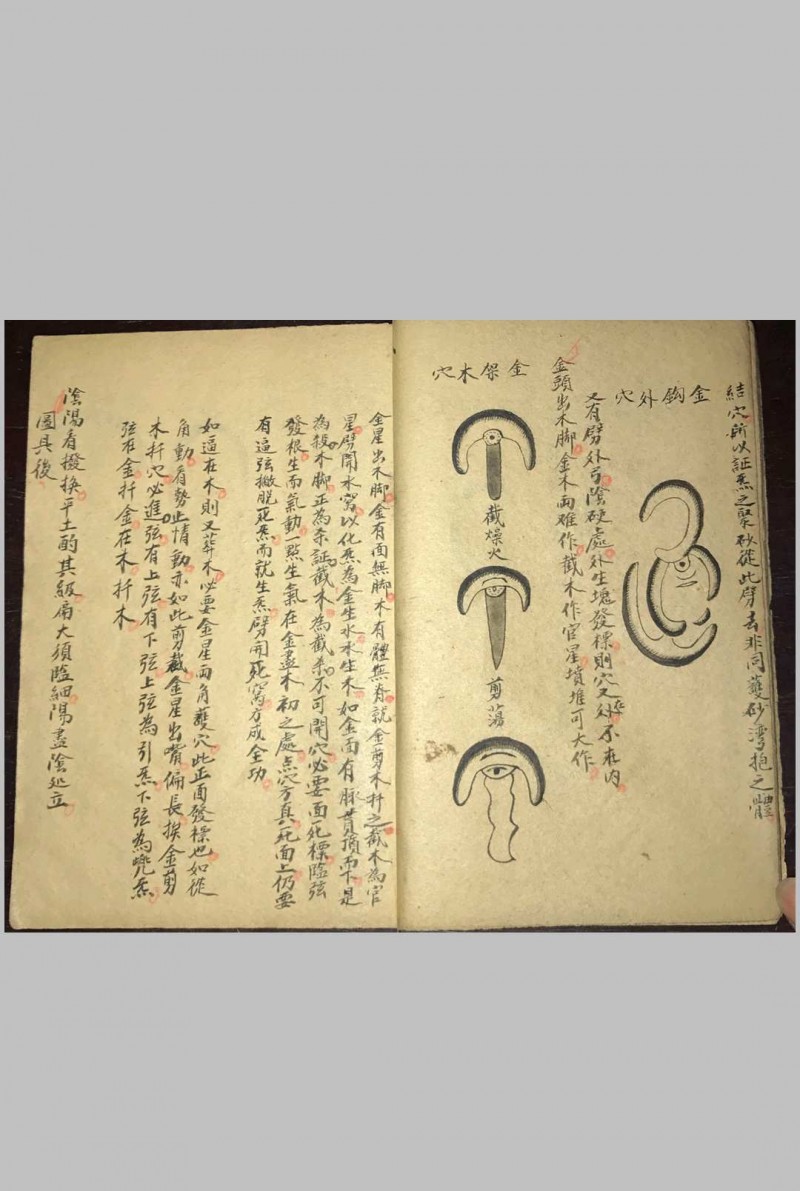 結穴所以証炁之聚砂從此劈去非同護砂湾抱之體
金鈎外穴
又有劈外弓陰硬處外生塊發標則穴又外應不在内
金頭出木脚金木两难作截木作官星墳堆可大作
金架木穴
截燥火
剪蕩
金星出木脚金有面無脚木有體無脊就金剪木扦之截木為官
星劈開水窩以化炁為金生水水生木如金面有脉貫頂而下是
為殺木脚正為杀証截木為截杀不可開穴必要面死標臨弦
發根生而氣動一㸃生氣在金盡木初之處点穴方真死面上仍要
有逼弦撇脱死炁而就生炁劈開死窩方成全功
如逼在木則又葬木必要金星两角護穴此正面發標也如從
角動看勢止情動亦如此剪裁金星出嘴偏長挨金剪
木扦穴必進弦有上弦有下弦上弦為引炁下弦為兜炁
弦在金扦金在木扦木
陰陽看撥換平土酌其級扁大須臨細陽盡陰処立
圖具後